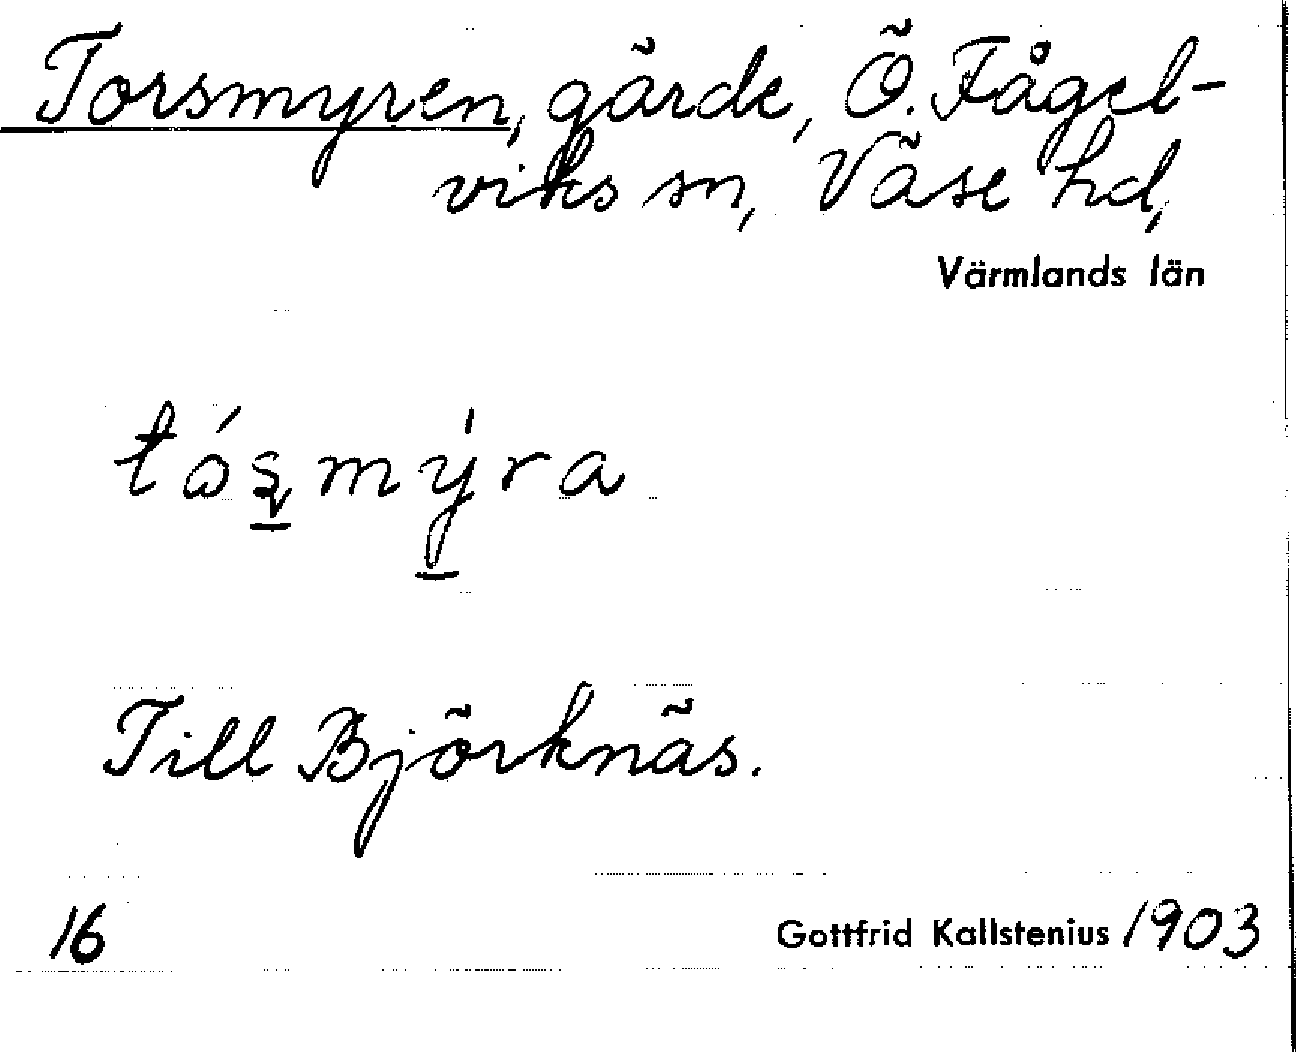 Torsmyren, gärde, Ö. Fågel-
viks sn, Väse hd,
Värmlands län
tósmýra
Till Björknäs.
16
Gottfrid Kallstenius 1903